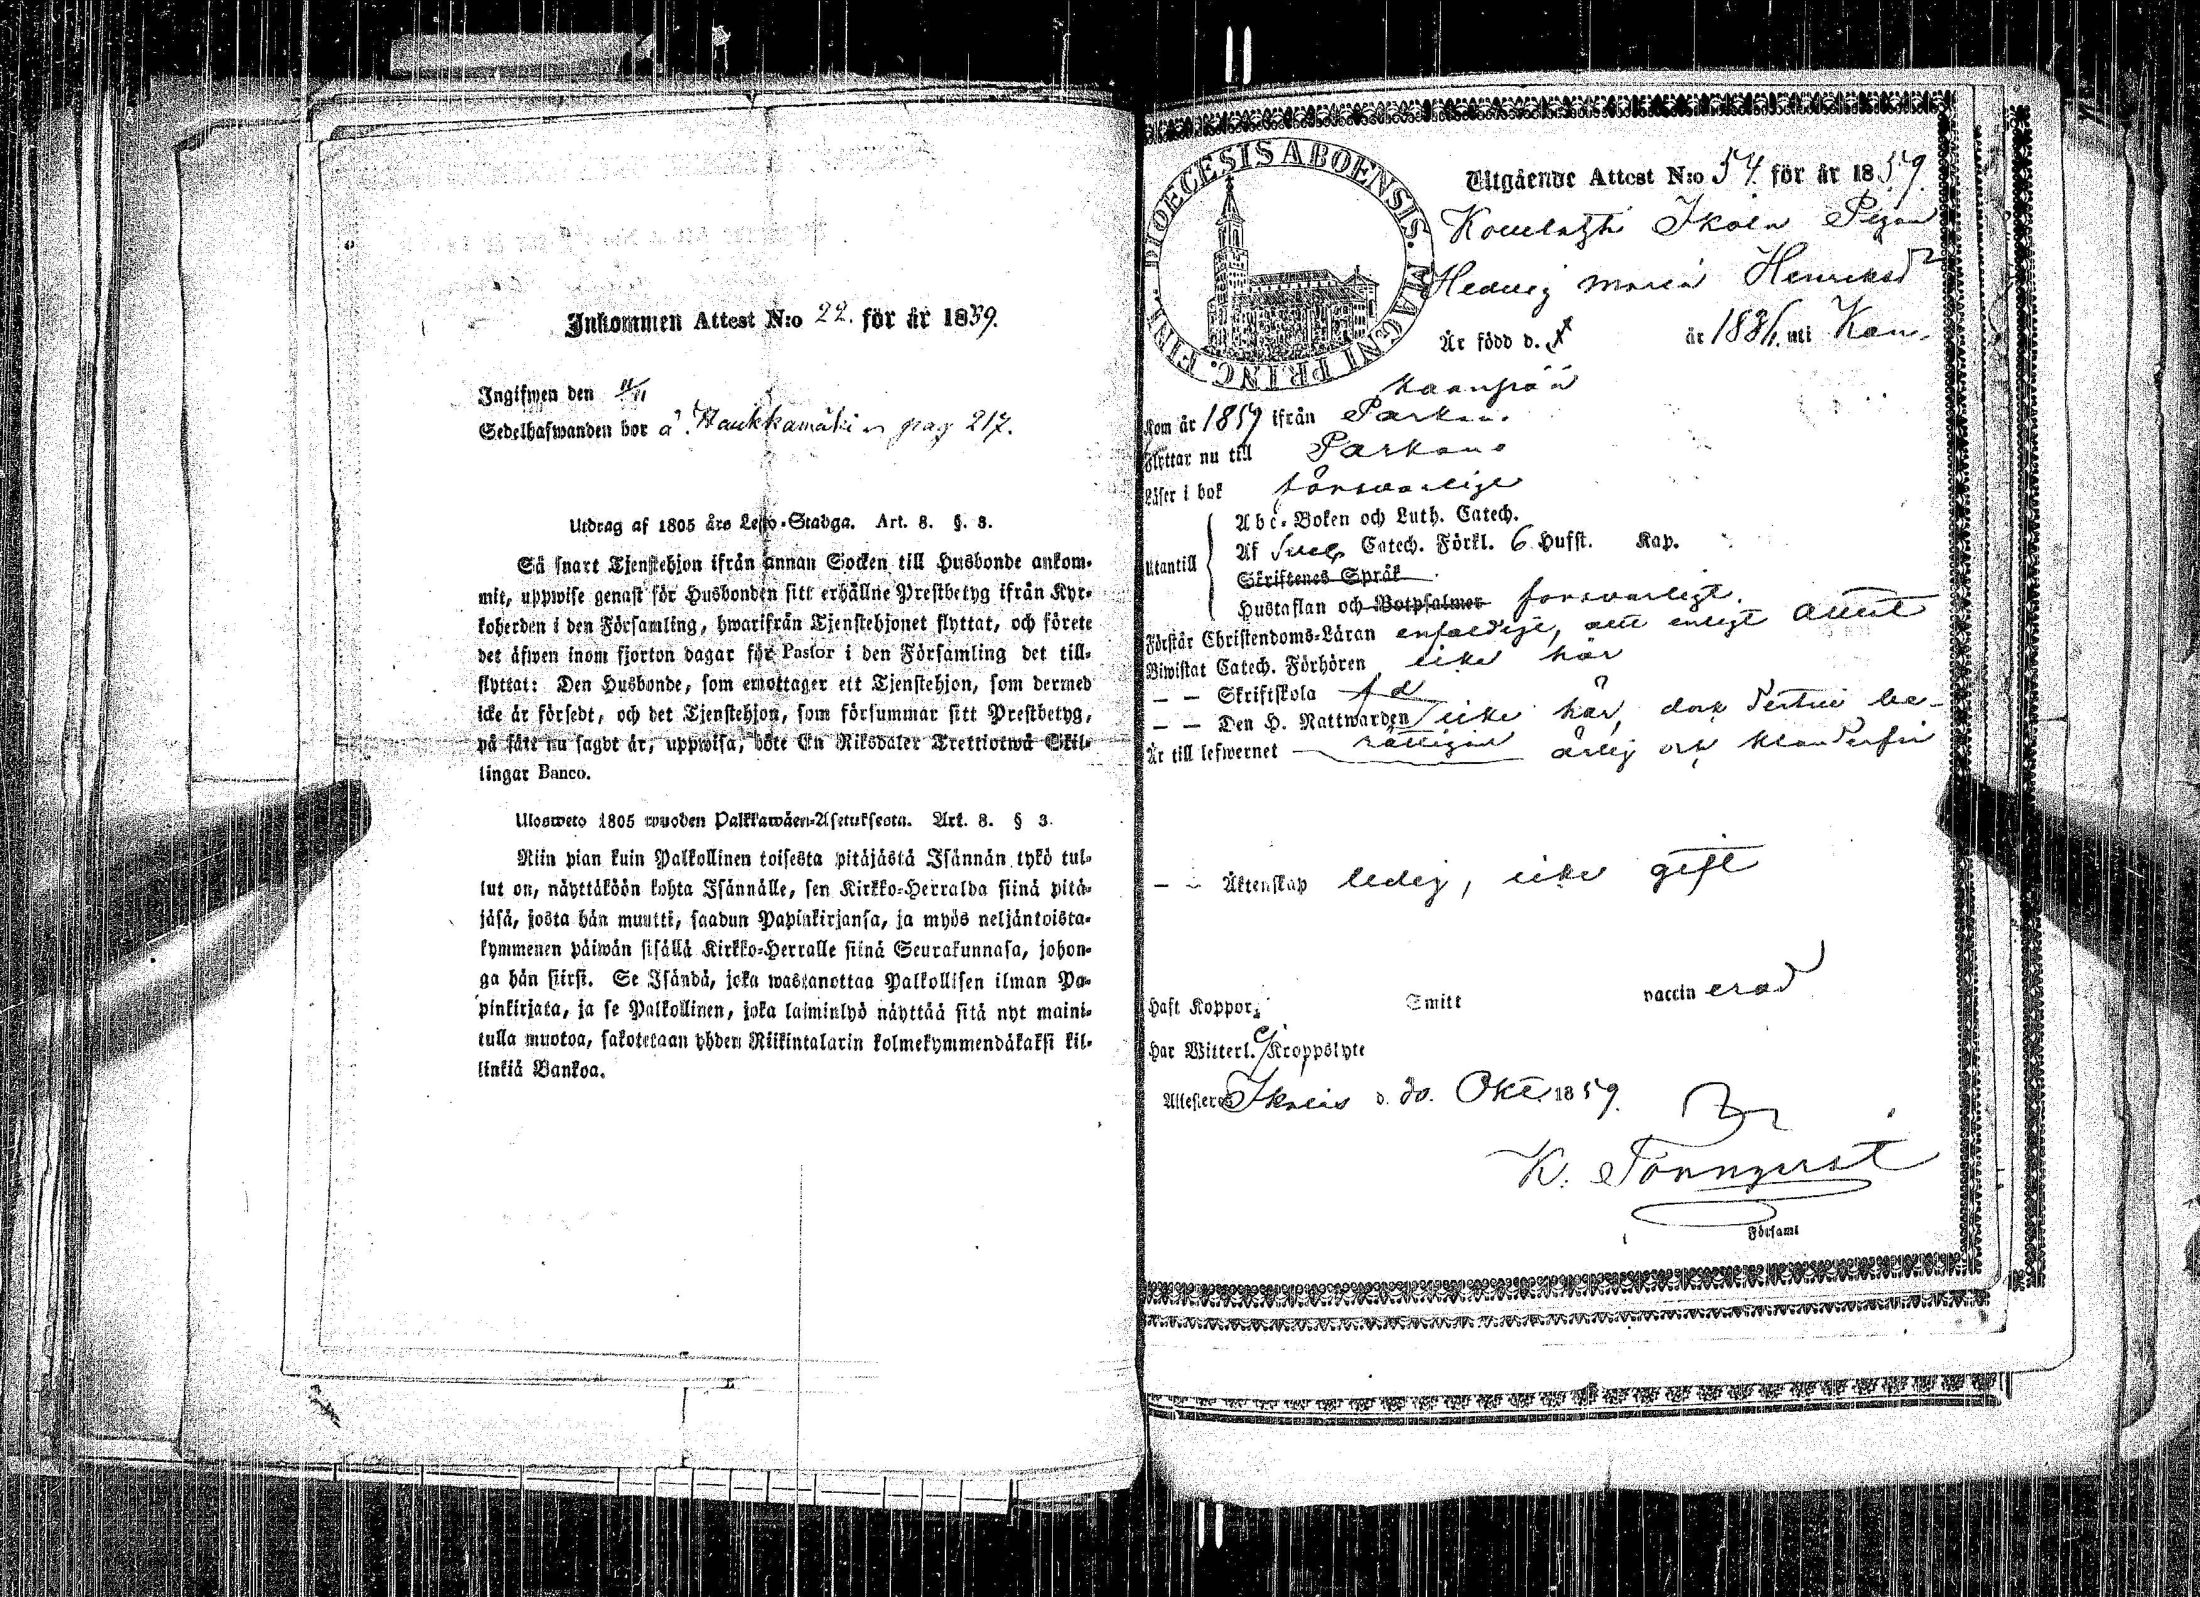 Inkommen Attest N:o 22. för år 1859.
Ingifwen den 11/11
Sedelhafwanden bor å Haukkamäki pag 217.
Utdrag af 1805 års Lego-Stadga. Art. 8. §. 3.
Så snart Tjenstehjon ifrån annan Socken till Husbonde ankom-
mit, uppwise genast för Husbonden sitt erhållne Prestbetyg ifrån Kyr-
koherden i den Församling, hwarifrån Tjenstehjonet flyttat, och förete
det äfwen inom fjorton dagar för Pastor i den Församling det till-
flyttat: Den Husbonde, som emottager ett Tjenstehjon, som dermed
icke är försedt, och det Tjenstehjon, som försummar sitt Prestbetyg,
på sätt nu sagdt är, uppwisa, böte En Riksdaler Trettiotwå Skil-
lingar Banco.
Ulosweto 1805 wuoden Palkkawäen-Asetuksesta. Art. 8. § 3.
Niin pian kuin Palkollinen toisesta pitäjästä Isännän tykö tul-
lut on, näyttäköön kohta Isännälle, sen Kirkko-Herralda siinä pitä-
jäsä, josta hän muutti, saadun Papinkirjansa, ja myös neljäntoista-
kymmenen päiwän sisällä Kirkko-Herralle siinä Seurakunnasa, johon-
ga hän siirsi. Se Isändä, joka wastanottaa Palkollisen ilman Pa-
pinkirjata, ja se Palkollinen, joka laiminlyö näyttää sitä nyt maini-
tulla muotoa, sakotetaan yhden Riikintalarin kolmekymmendäkaksi kil-
linkiä Bankoa.
DIOECESIS ABOENSIS. MAGNI PRINC. FINL.
Utgående Attest N:o 54. för år 1859.
Ikola Pigan
Hedvig Maria Henriksd:r
Är född d. år 1836. uti Kan-
kaanpää
Kom år 1859 ifrån Parkano
Flyttar nu till Parkano
Läser i bok försvarligt
Utantill
Abc-Boken och Luth. Catech.
Af Sveb. Catech. Förkl. 6 Husst. Kap.
Skriftenes Språk
Hustaflan och Botpsalmer försvarligt.
Förstår Christendoms-Läran enfaldigt, allt enligt Attest
Biwistat Catech. Förhören icke här
— — Skriftskola
— — Den H. Nattwarden icke här, dock dertill be-
rättigad
Är till lefwernet ärlig och klanderfri
— — Äktenskap ledig, icke gift
Haft Koppor. Smitt vaccinerad
Har Witterl. ej Kroppslyte
Attesteras Ikalis d. 30. Okt. 1859.
K. Tönnqvist
Församl